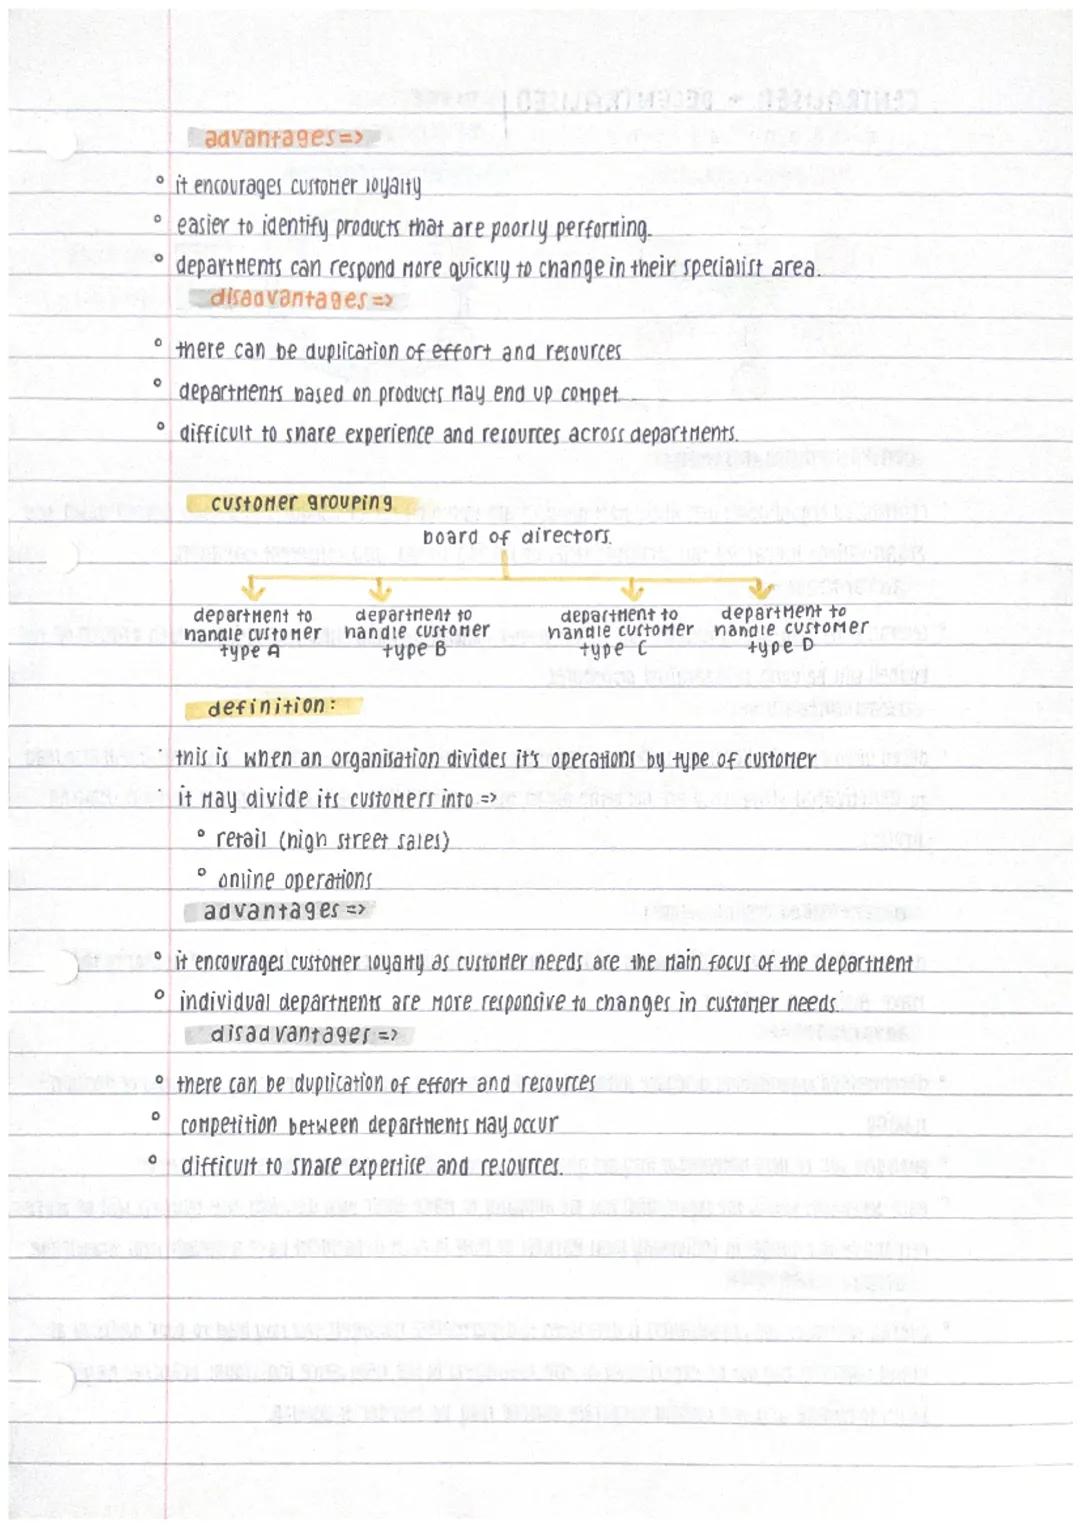 advantages=>
° it encourages customer loyalty
° easier to identify products that are poorly performing.
° departments can respond more quickly to change in their specialist area.
disadvantages=>
° there can be duplication of effort and resources
° departments based on products may end up compet
° difficult to share experience and resources across departments.
customer grouping
board of directors.
department to handle customer type A
department to handle customer type B
department to handle customer type C
department to handle customer type D
definition:
· this is when an organisation divides it's operations by type of customer
· it may divide its customers into =>
° retail (high street sales)
° online operations
advantages =>
° it encourages customer loyalty as customer needs are the main focus of the department
° individual departments are more responsive to changes in customer needs.
disadvantages =>
° there can be duplication of effort and resources
° competition between departments may occur
° difficult to share expertise and resources.